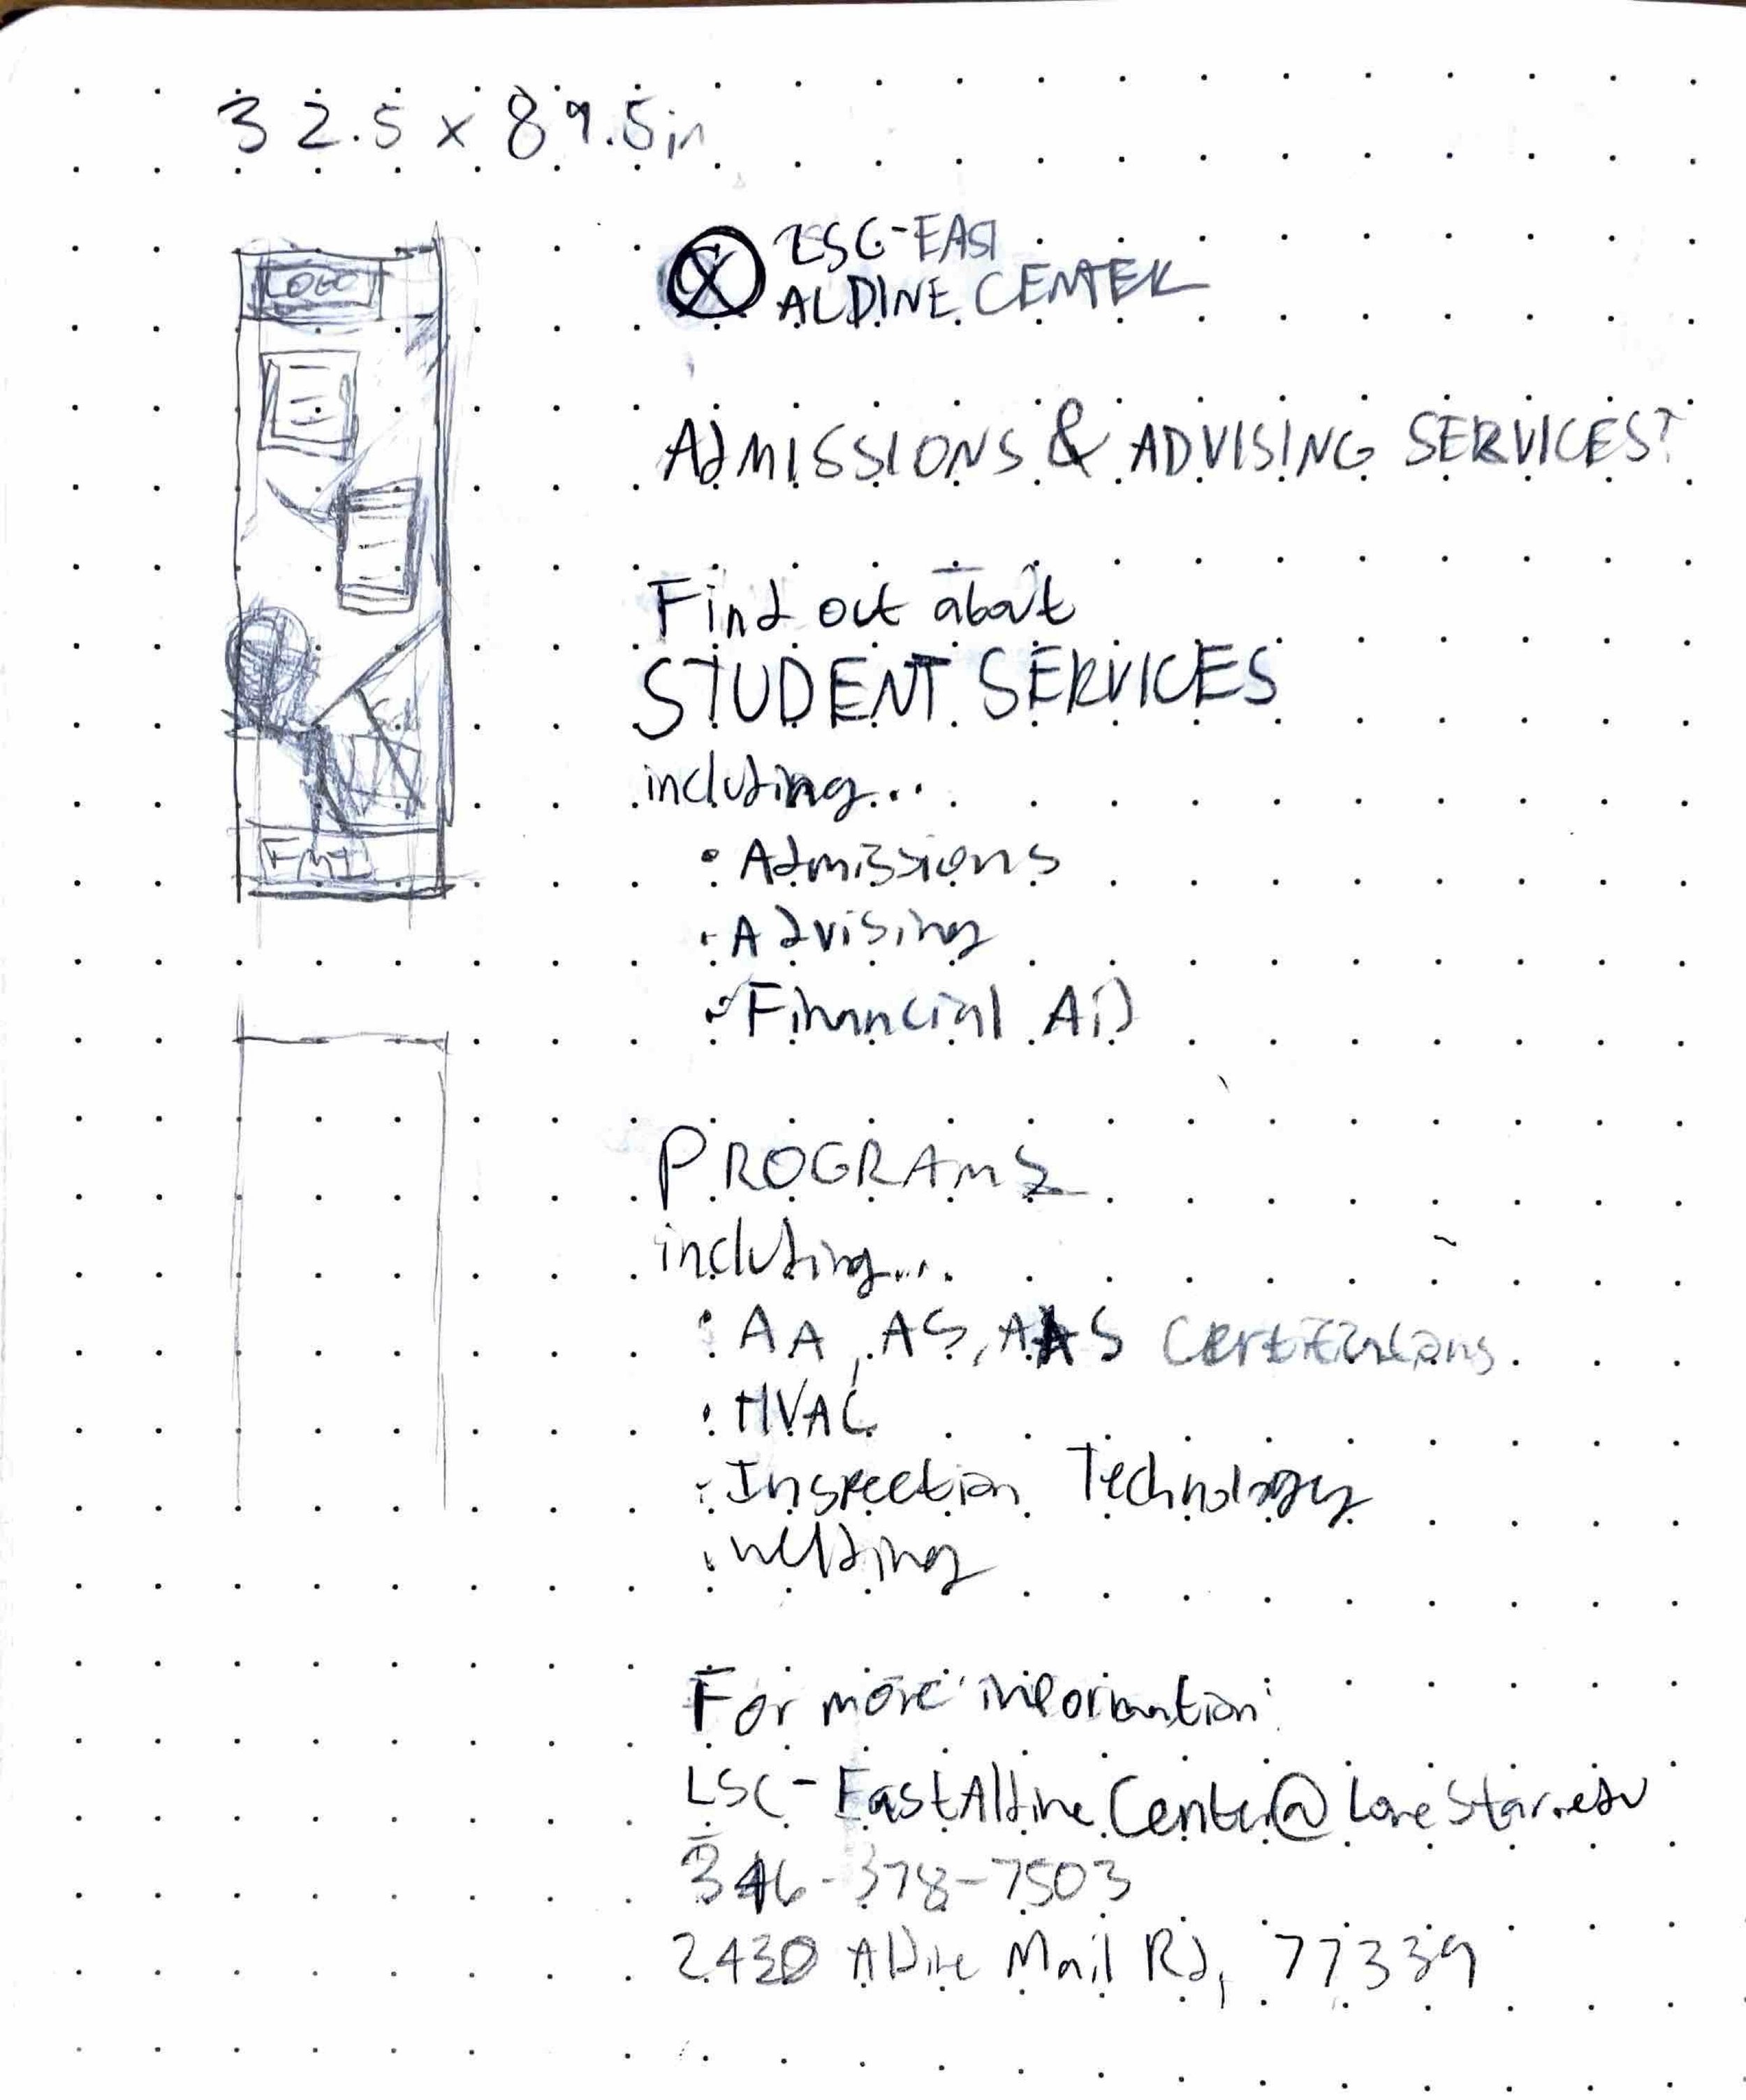 32.5 x 89.5in
LOGO
FMI
LSC-EAST
ALDINE CENTER
ADMISSIONS & ADVISING SERVICES?
Find out about
STUDENT SERVICES
including...
• Admissions
• Advising
• Financial AiD
PROGRAMS
including...
• AA, AS, AAS
• HVAC
• Inspection Technology
• Welding
For more information:
LSC-EastAldineCenter@LoneStar.edu
346-378-7503
2430 Aldine Mail Rd, 77339